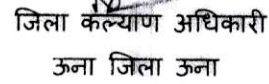 जिला कल्याण अधिकारी
ऊना जिला ऊना